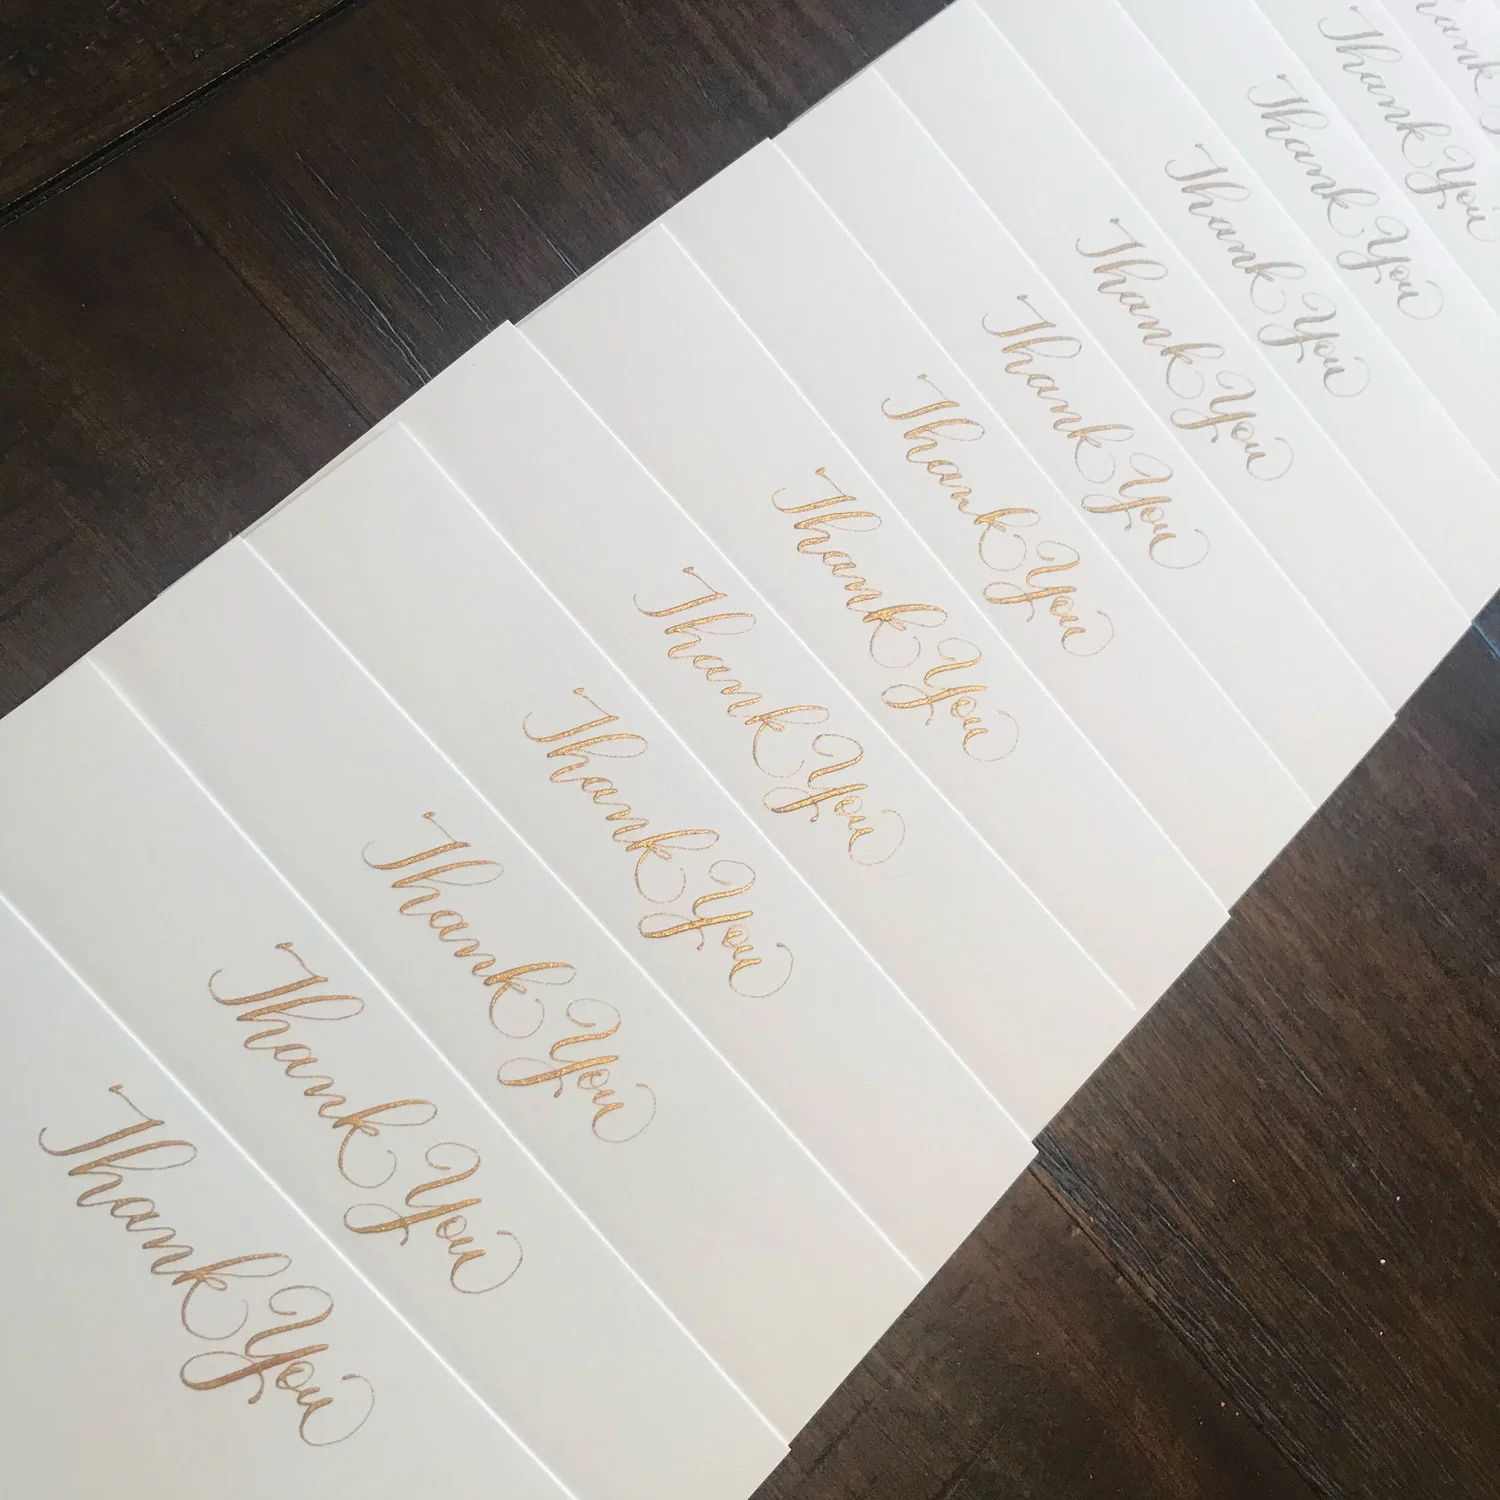 Thank You
Thank You
Thank You
Thank You
Thank You
Thank You
Thank You
Thank You
Thank You
Thank You
Thank You
Thank You